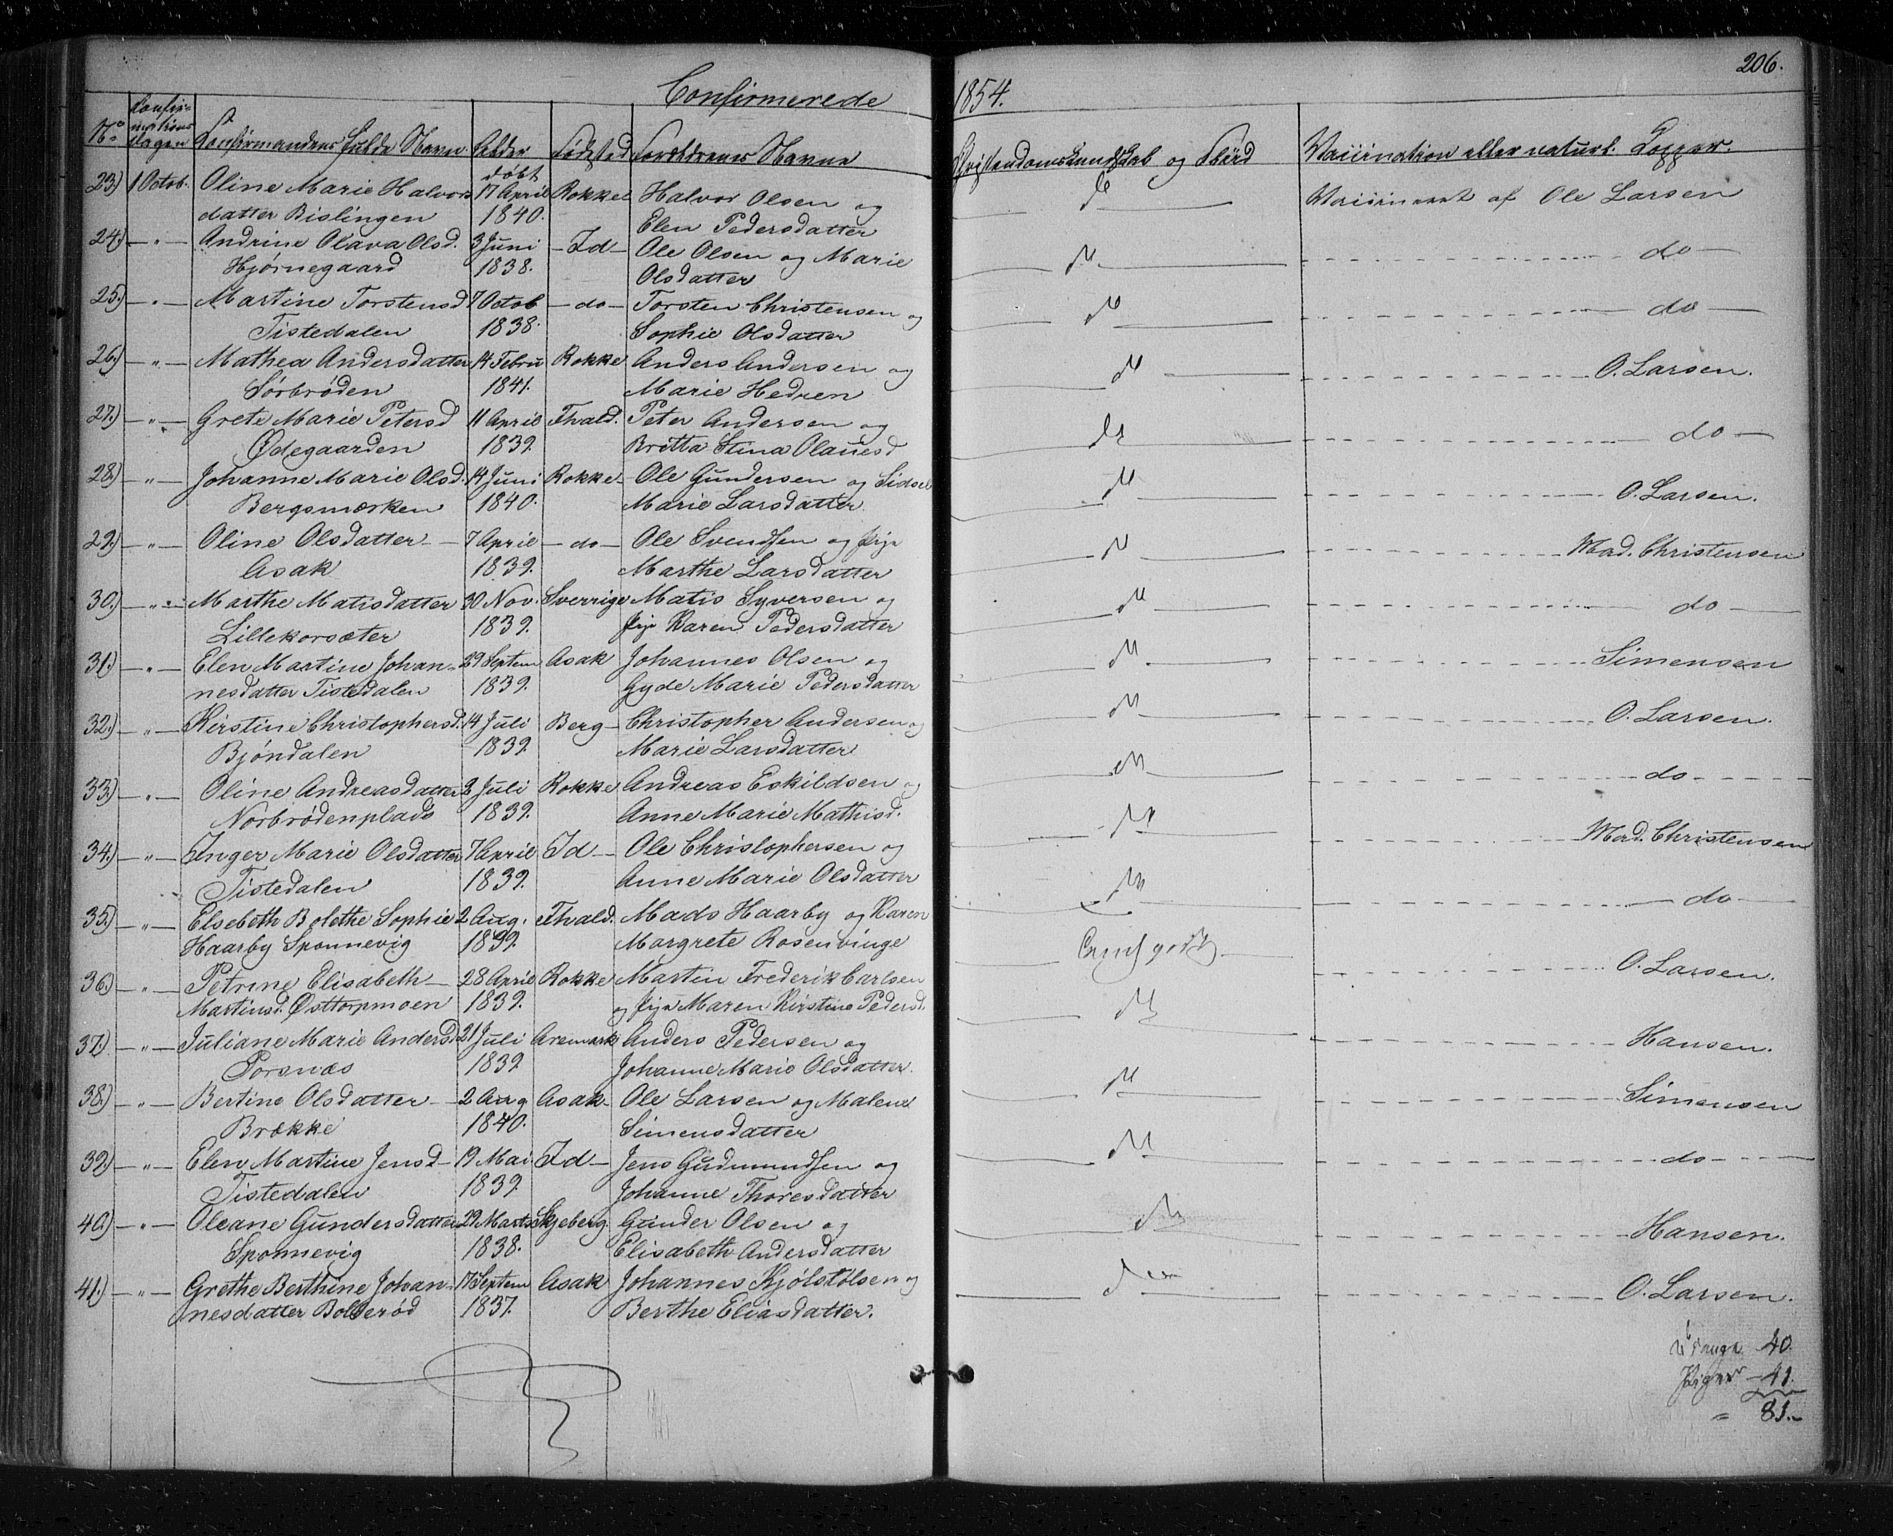 206.
Confirmerede
1854.
No Confirmationsdagen Confirmandens fulde Navn Alder Fødested Forældrenes Navne Christendomskundskab og Flid Vaccination eller naturl. Kopper.
døbt
23) 1 Octob. Oline Marie Halvors 17 April Rokke Halvor Olsen og Vaccineret af Ole Larsen
datter Bislingen 1840. Elen Pedersdatter
24) " Andrine Olava Olsd. 3 Juni Id Ole Olsen og Marie do
Hjørnegaard 1838. Olsdatter
25) " Martine Torstensd 7 Octob do Torsten Christensen og do
Tistedalen 1838. Sophie Olsdatter
26) " Mathea Andersdatter 14 Febru Rokke Anders Andersen og O. Larsen.
Sørbrøden 1841. Marie Hedren
27) " Grete Marie Petersd 11 April Fhald. Peter Andersen og do
Ødegaarden 1839. Britta Stina Olauesd
28) " Johanne Marie Olsd. 14 Juni Rokke Ole Gundersen og Sidsel O. Larsen.
Bergsmærken 1840. Marie Larsdatter
29) " Oline Olsdatter 7 April do Ole Svendsen og Pige Mad. Christensen
Asak 1839. Marthe Larsdatter
30) " Marthe Matisdatter 30 Nov. Sverrige Matis Syversen og do
Lillekorsæter 1839. Pige Karen Pedersdatter
31) " Elen Martine Johan- 29 Septem Asak Johannes Olsen og Simensen
nesdatter Tistedalen 1839. Gyde Marie Pedersdatter
32) " Kirstine Christophersd. 14 Juli Berg Christopher Andersen og O. Larsen.
Bjøndalen 1839. Marie Larsdatter
33) " Oline Andreasdatter 2 Juli Rokke Andreas Eskildsen og do
Norbrødenplads 1839. Anne Marie Mathisd.
34) " Inger Marie Olsdatter 7 April Id Ole Christophersen og Mad. Christensen
Tistedalen 1839. Anne Marie Olsdatter
35) " Elsebeth Bolethe Sophie 2 Aug. Fhald. Mads Haarby og Karen do
Haarby Sponnevig 1839. Margrete Rosenvinge
36) " Petrine Elisabeth 28 April Rokke Martin Frederik Carlsen O. Larsen.
Martinsd. Østtorpmoen 1839. og Pige Maren Kirstine Pedersd.
37) " Juliane Marie Andersd 21 Juli Aremark Anders Pedersen og Hansen.
Porsnæs 1839 Johanne Marie Olsdatter.
38) " Bertine Olsdatter 2 Aug Asak Ole Larsen og Malene Simensen
Brække 1840. Simensdatter
39) " Elen Martine Jensd 19 Mai Id Jens Gudmundsen og do
Tistedalen 1839 Johanne Thoresdatter
40) " Oleane Gundersdatter 29 Marts Skjeberg. Gunder Olsen og Hansen.
Sponnevig 1838. Elisabeth Andersdatter
41) " Grethe Berthine Johan- 17 Septem Asak Johannes Kjølstølsen og O. Larsen.
nesdatter Bollerød 1837. Berthe Eliasdatter.
Drenge 40.
Piger 41.
" 81.